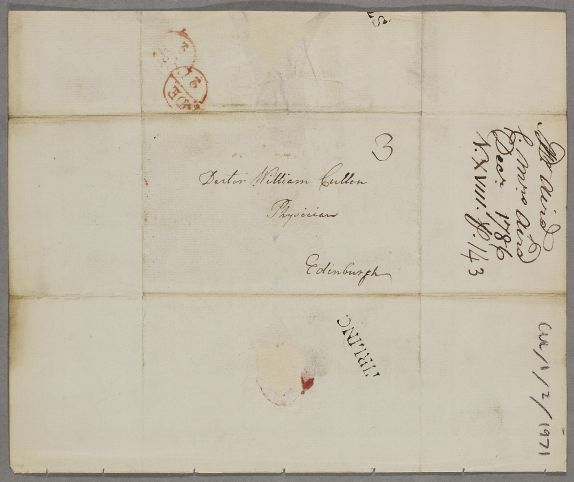 3
Doctor William Cullen
Physician
Edinburgh
Mr Aird
C. Mrs Aird
Decr. 1786
N. XVIII. P. 143
STIRLING
CUL/1/2/1971
DE